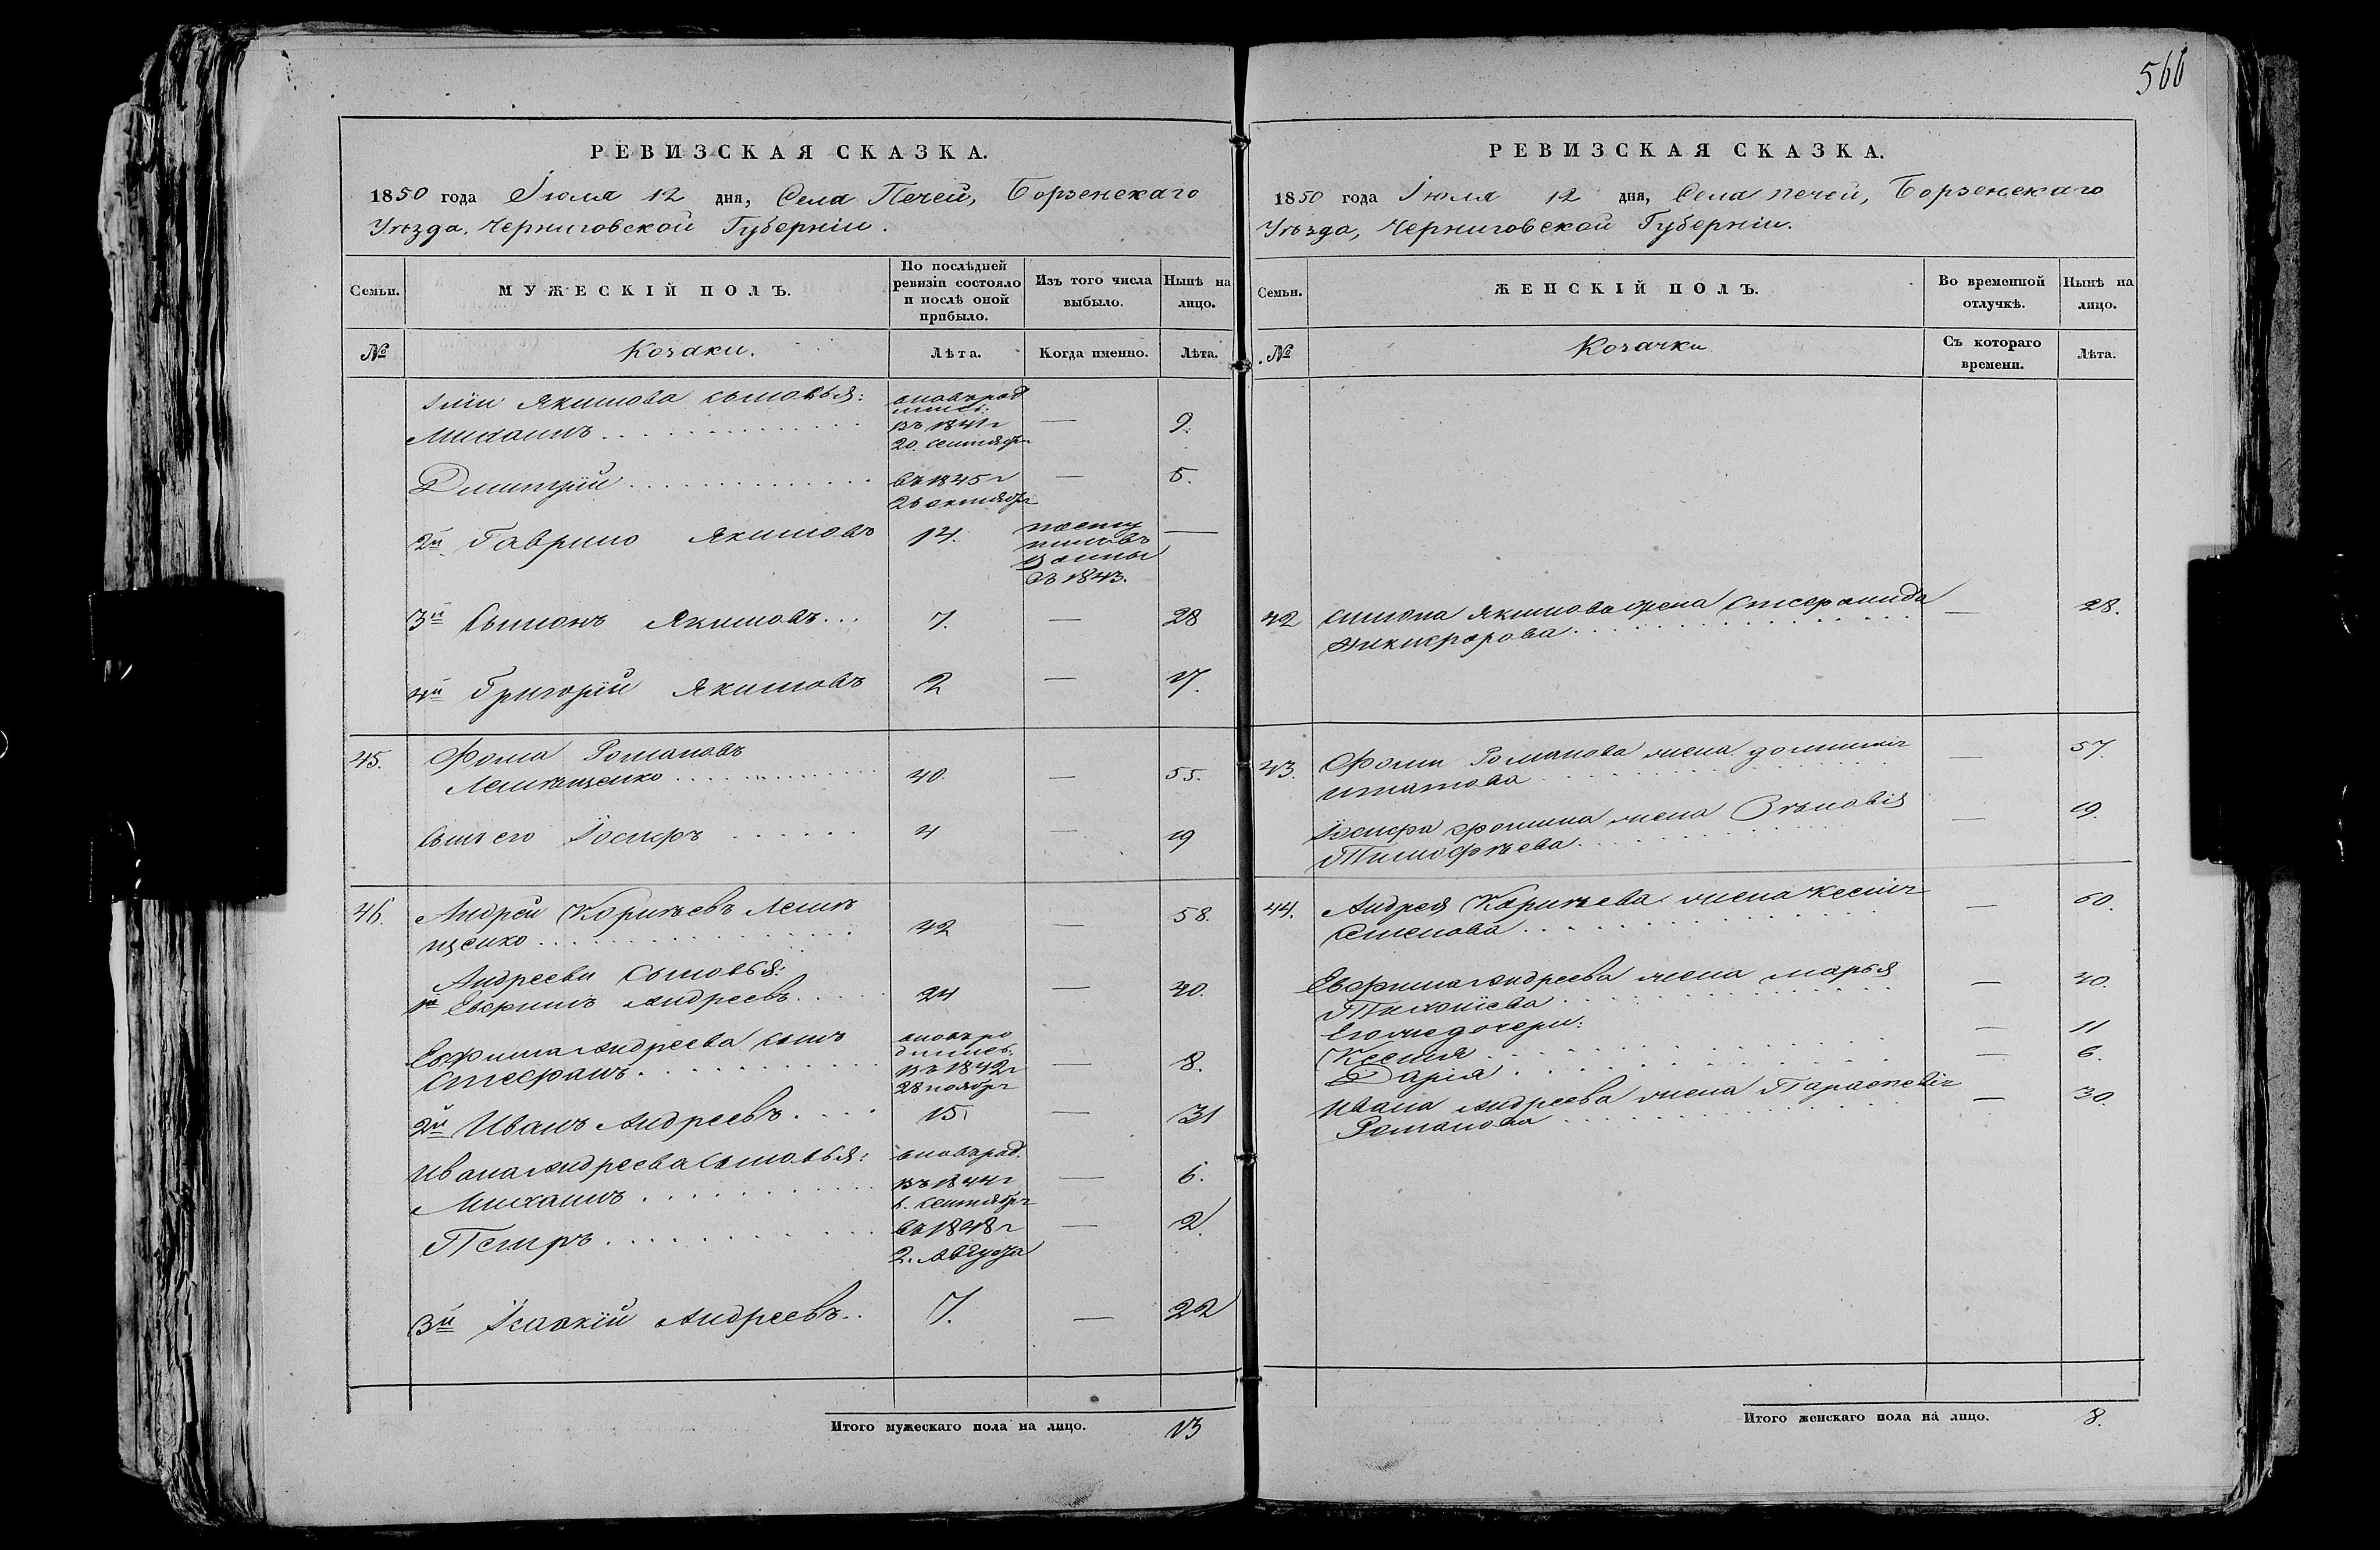 566
РЕВИЗСКАЯ СКАЗКА.
1850 года Іюля 12 дня, Села Печей, Борзенскаго
Уѣзда, Черниговской Губерніи.
Семьи.
МУЖЕСКІЙ ПОЛЪ.
По послѣдней
ревизіи состояло
и послѣ оной
прибыло.
Изъ того числа
выбыло.
Нынѣ на
лицо.
№
Козаки.
Лѣта.
Когда именно.
Лѣта.
Якимова сыновья:
Михаилъ
въ 1841 г
20. сентября
9.
Дмитрій
въ 1845 г
26 октября
5.
2й Гаврило Якимовъ
14.
въ 1843.
3й Сымонъ Якимовъ
7.
28
4й Григорій Якимовъ
2
17.
45.
Фома Романовъ
40.
55.
Сынъ его Іосифъ
4
19
46.
Андрей Корнѣевъ
щенко
42
58.
Андреевы Сыновья:
1й Евфимъ Андреевъ
24
40.
Евфима Андреева сынъ
Стефанъ
вновь ро
дился:
въ 1842 г
28 ноября
8.
2й Иванъ Андреевъ
15.
31
Ивана Андреева Сыновья:
вновь род.
Михаилъ
въ 1844 г
6. Сентября
6.
Петръ
въ 1848 г
2. Августа
2.
3й Ісаакій Андреевъ
7.
22
Итого мужескаго пола на лицо.
13
РЕВИЗСКАЯ СКАЗКА.
1850 года Іюля 12 дня, Села Печей, Борзенскаго
Уѣзда, Черниговской Губерніи.
Семьи.
ЖЕНСКІЙ ПОЛЪ.
Во временной
отлучкѣ.
Нынѣ на
лицо.
№
Козачки
Съ котораго
времени.
Лѣта.
42
Симона Якимова жена Стефанида
Никифорова
28.
43.
Фомы Романова жена
Игнатова
57.
Іосифа Фомина жена Зѣновія
Тимофѣева
19.
44.
Андрея Корнѣева жена Ксенія
Семенова
60.
Евфима Андреева жена Марья
40.
Его же дочери:
Ксенія
11
Дарія
6.
Ивана Андреева жена Параскевія
Романова
30.
Итого женскаго пола на лицо.
8.